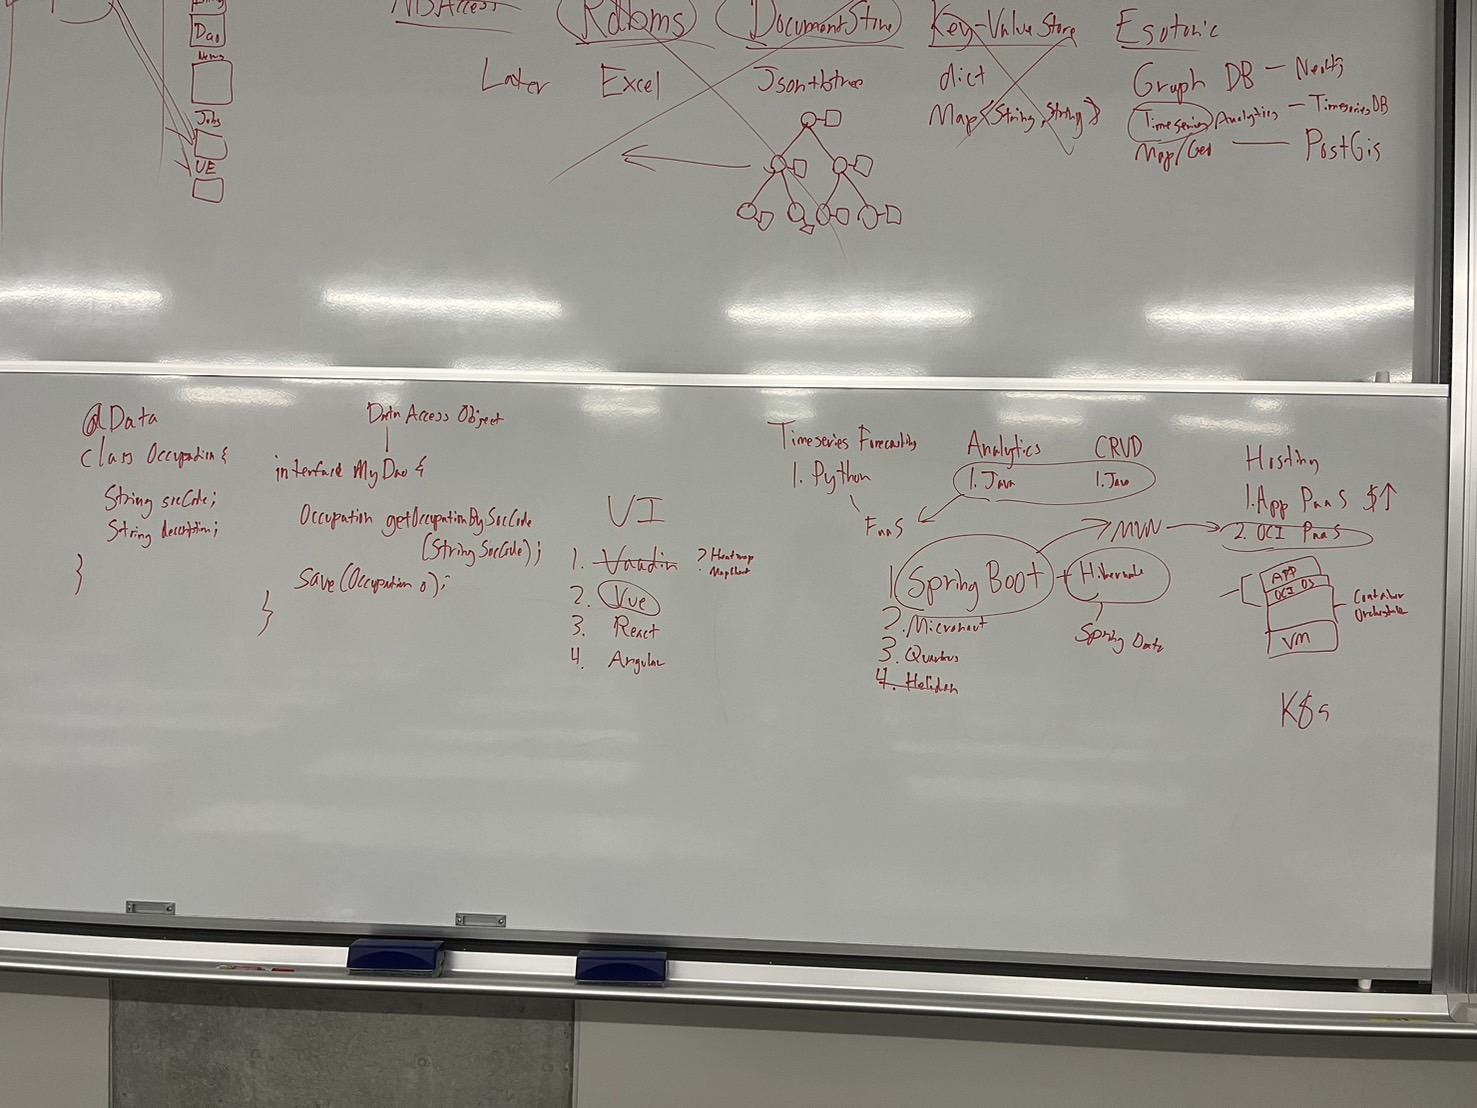 Dao
News
Jobs
UE
Access
Rdbms
Document Store
Key-Value Store
Esoteric
Later
Excel
Json + btree
dict
Map<String, String>
Graph DB — Neo4j
Timeseries Analytics — TimeseriesDB
Map/Geo — PostGis
@Data
class Occupation {
String socCode;
String description;
}
Data Access Object
interface MyDao {
Occupation getOccupationBySocCode
(String SocCode);
save(Occupation o);
}
UI
1. Vaadin
? Heatmap
? Map Chart
2. Vue
3. React
4. Angular
Timeseries Forecasting
1. Python
FaaS
Analytics
1. Java
CRUD
1. Java
MVN
1. Spring Boot + Hibernate
2. Micronaut
3. Quarkus
4. Helidon
Spring Data
Hosting
1. App PaaS $↑
2. OCI PaaS
APP
OCI OS
VM
Container
Orchestrator
K8s